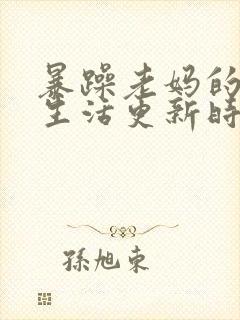 暴躁老妈的
生活更新时
孫旭東